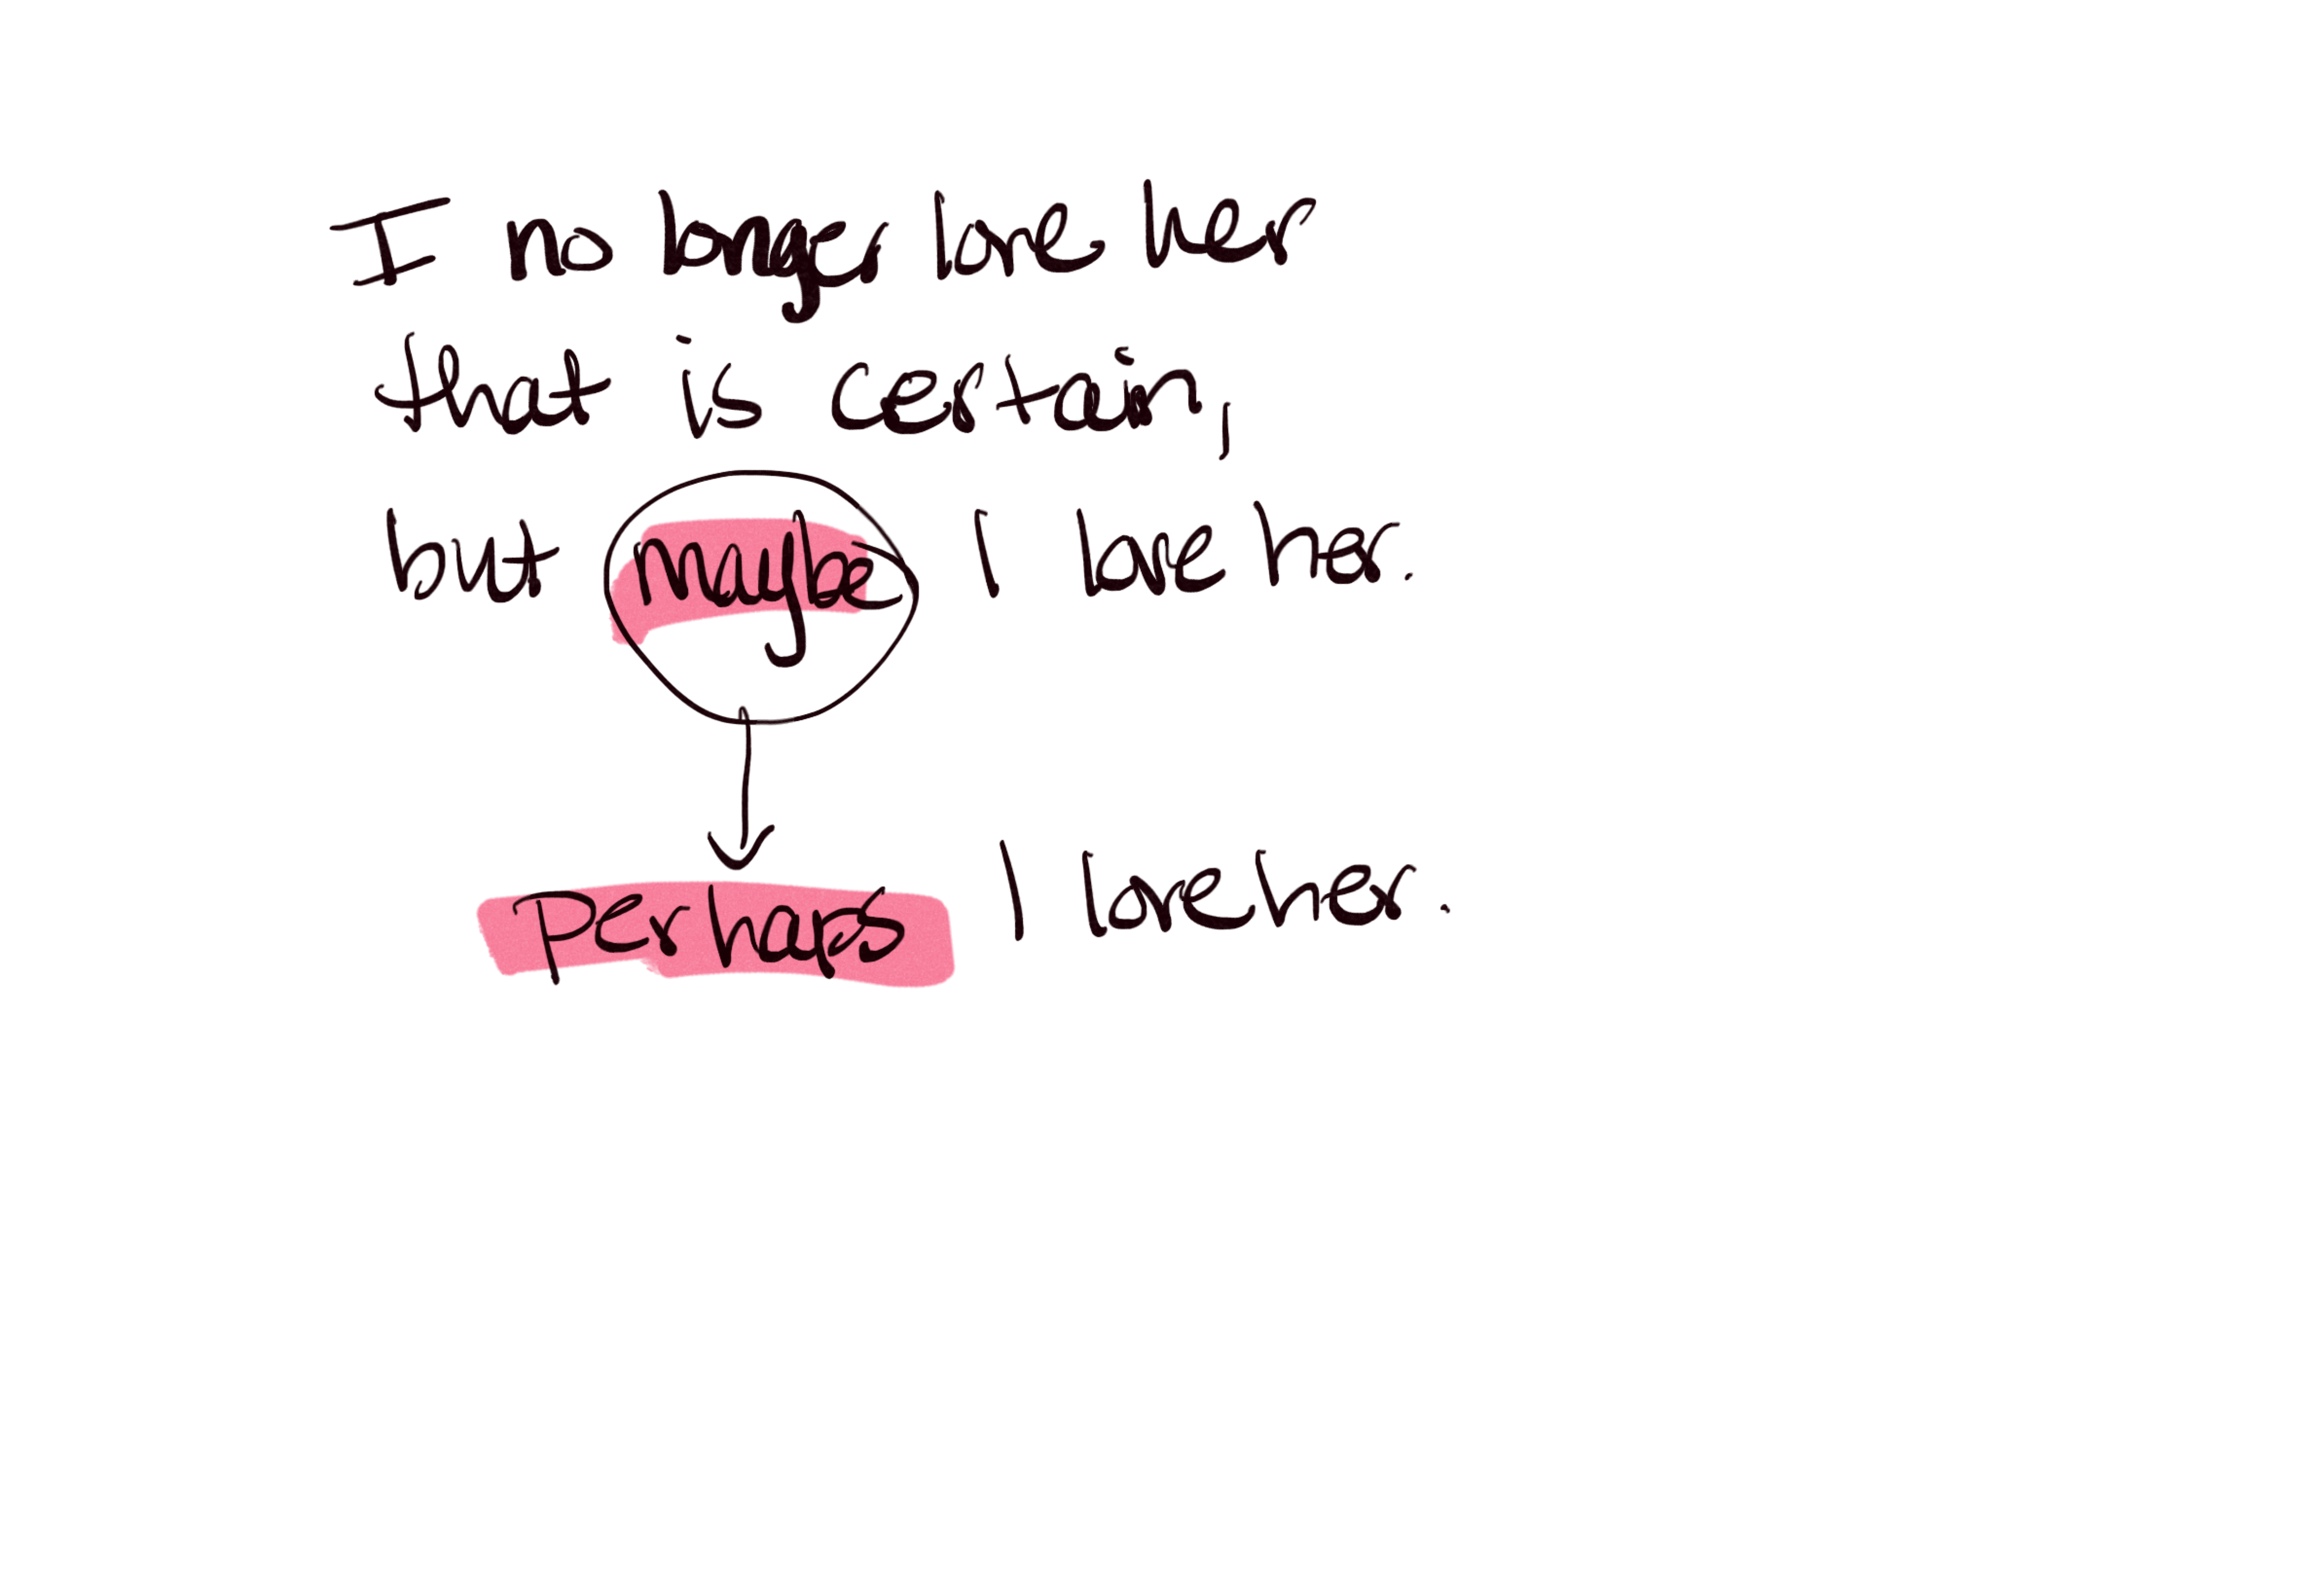 I no longer love her
that is certain,
but maybe I love her.
perhaps I love her.